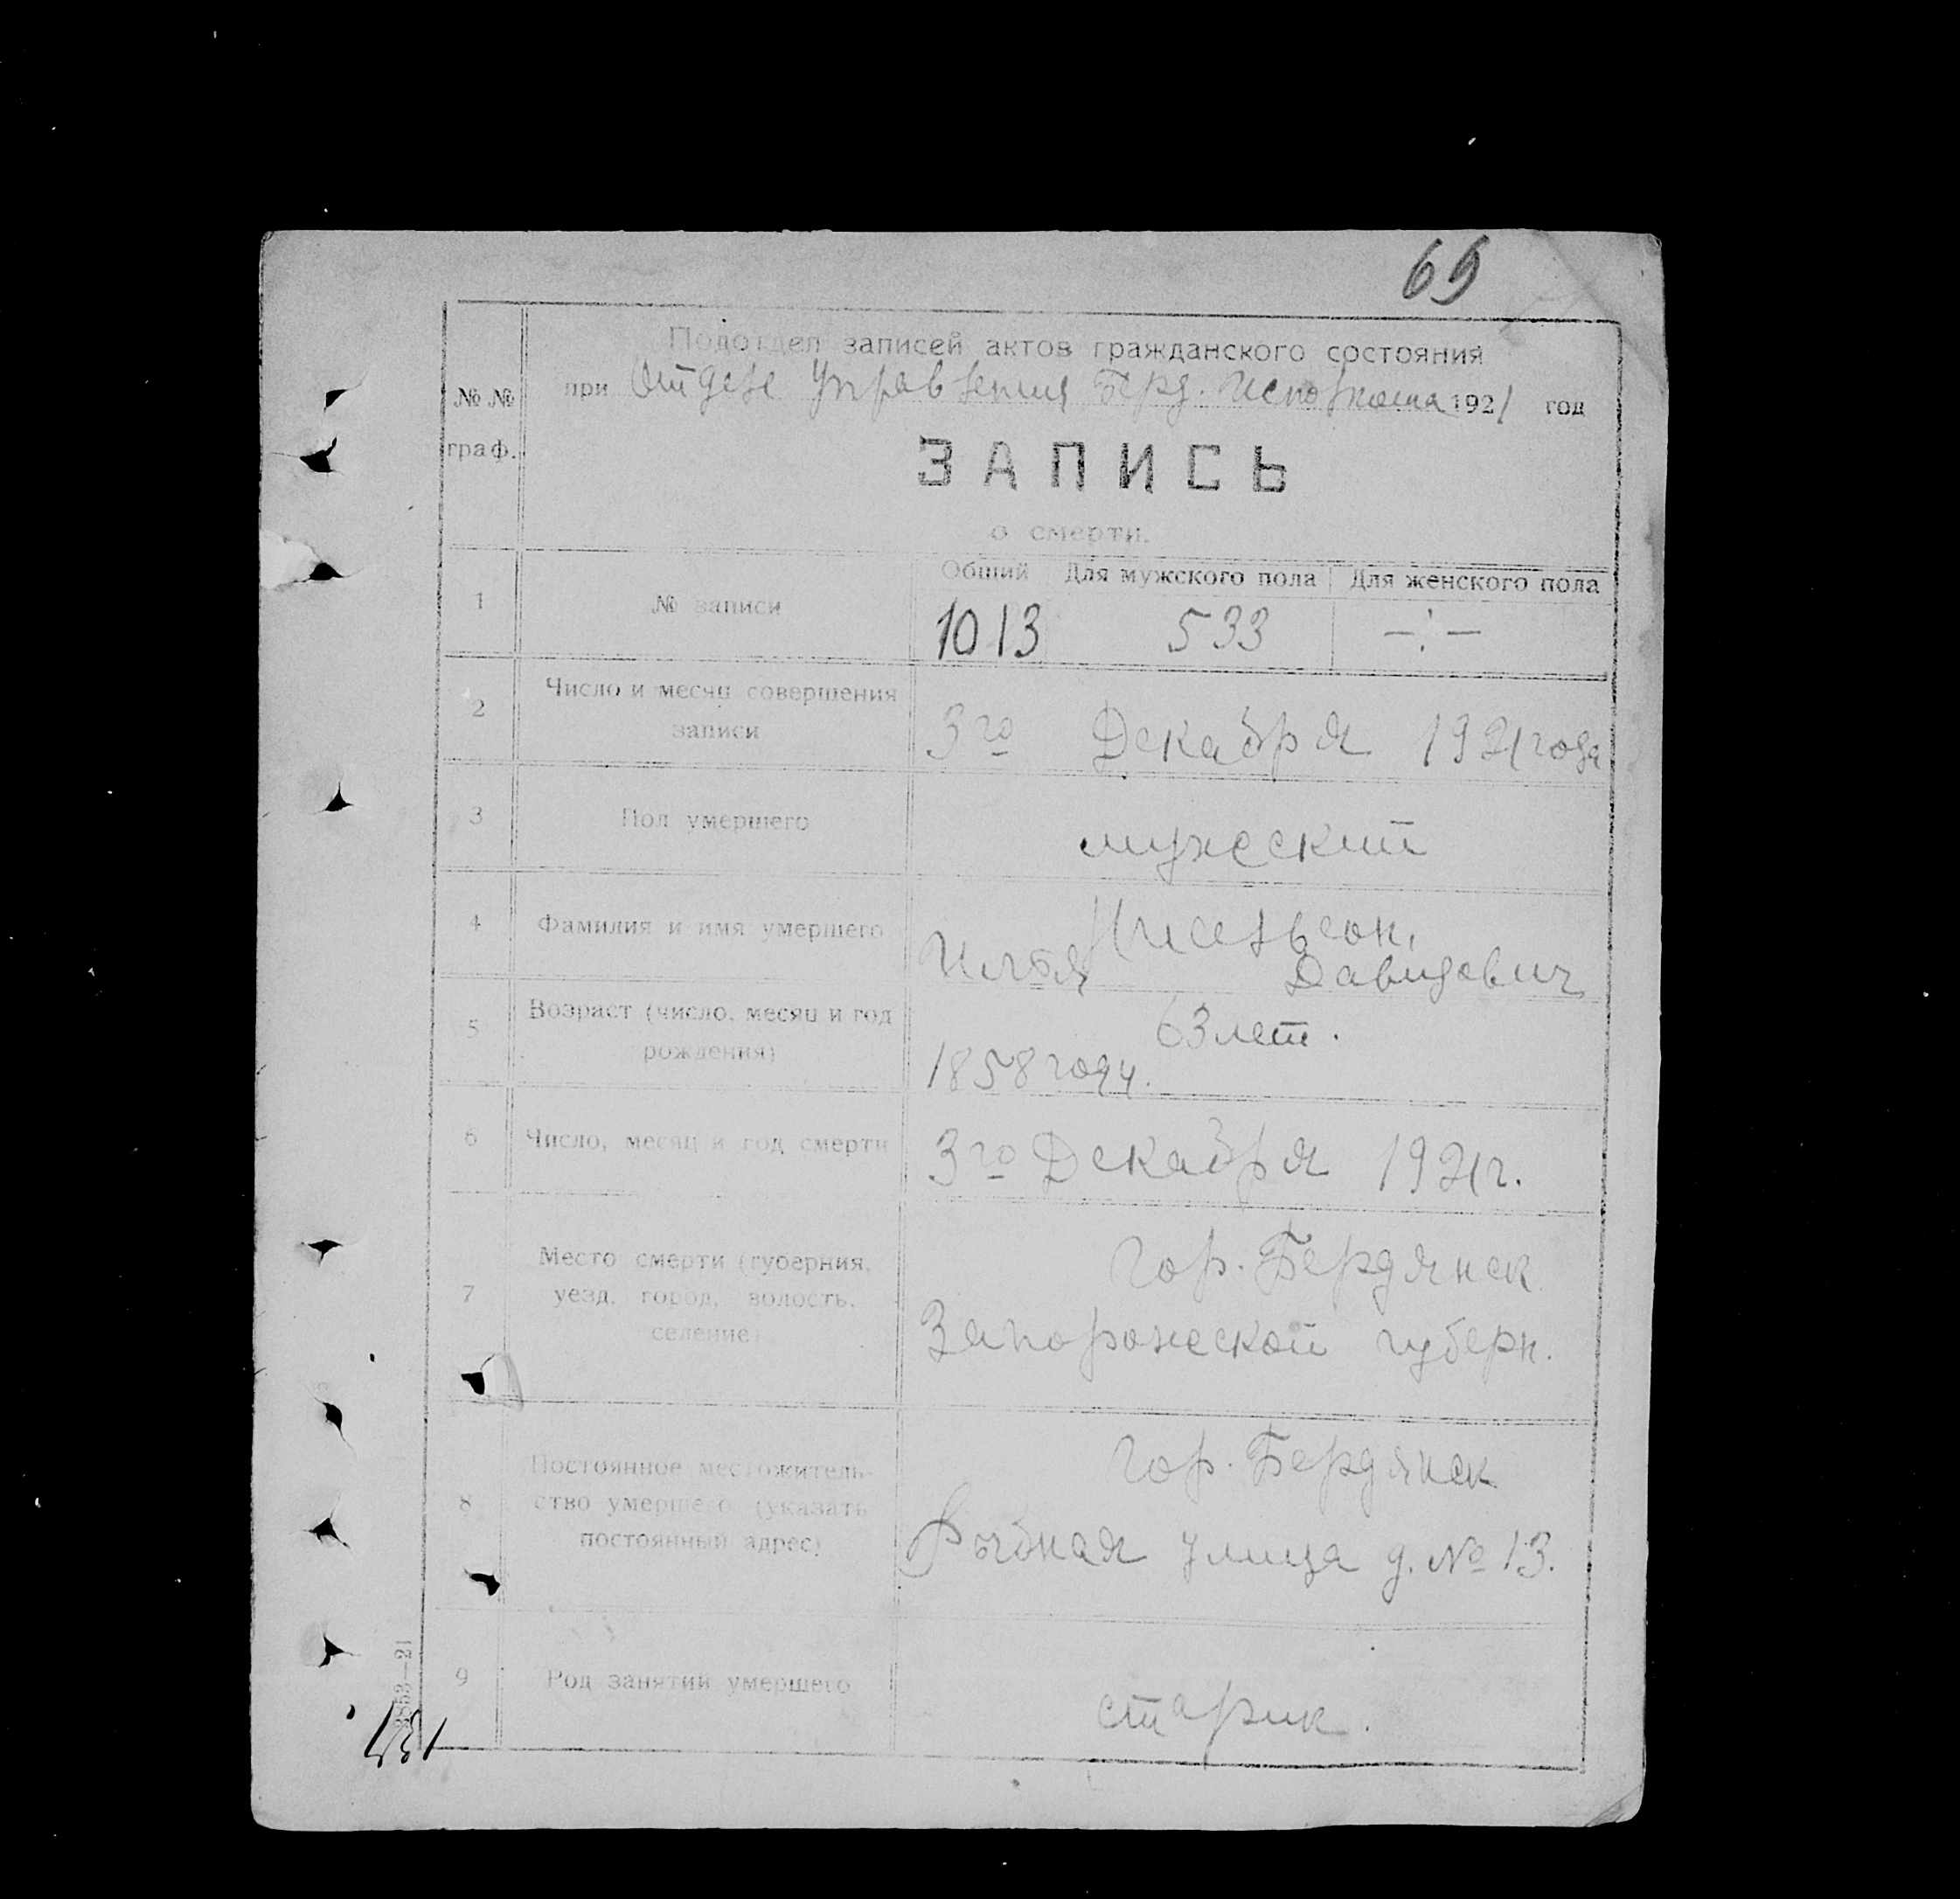 69
Подотдел записей актов гражданского состояния
при Отделе Управления Берд. Исполкома 1921 год
№№
граф.
ЗАПИСЬ
о смерти.
Общий Для мужского пола Для женского пола
1 № записи 1013 533 —:—
2 Число и месяц совершения
записи
3го Декабря 1921 года
3 Пол умершего мужеский
4 Фамилия и имя умершего
Илья Давидович
5 Возраст (число, месяц и год
рождения)
63 лет.
1858 году.
6 Число, месяц и год смерти 3го Декабря 1921 г.
7 Место смерти (губерния,
уезд, город, волость,
селение)
Гор. Бердянск
Запорожеской губерн.
8 Постоянное местожитель-
ство умершего (указать
постоянный адрес)
Гор. Бердянск
Рыбная улица д. № 13.
9 Род занятий умершего старик.
3853—21